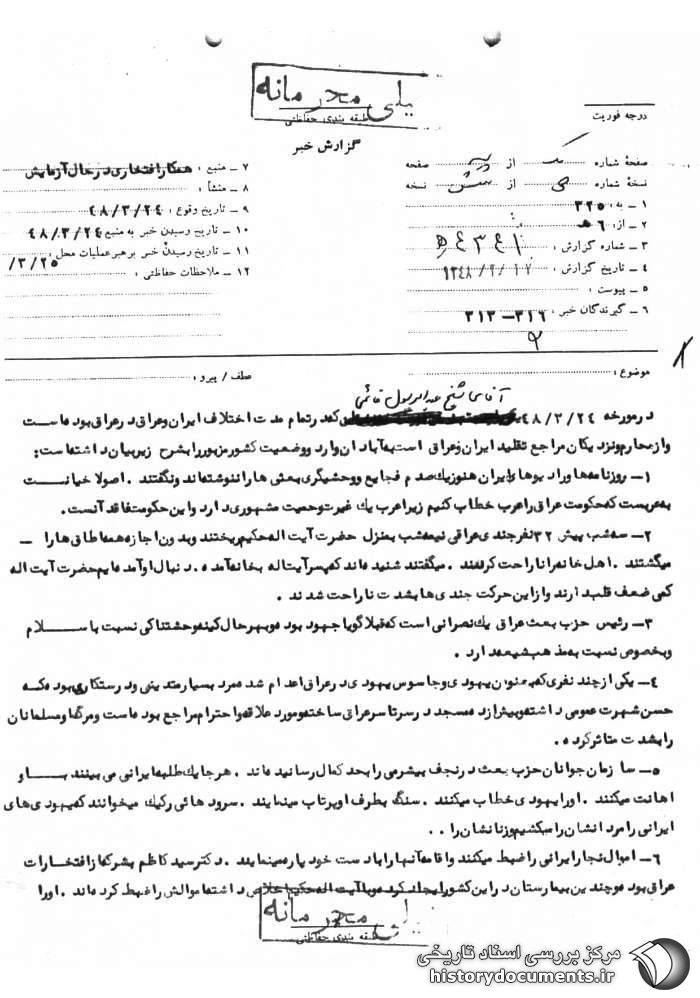 خیلی محرمانه
طبقه بندی حفاظتی
درجه فوریت
گزارش خبر
صفحهٔ شماره یک از صفحه
نسخهٔ شماره از شش نسخه
۱ ـ به : ۳۲۵
۲ ـ از : ۶ ه
۳ ـ شماره گزارش :
۴ ـ تاریخ گزارش :
۵ ـ پیوست :
۶ ـ گیرندگان خبر : ۳۱۶ - ۳۱۲
۷ ـ منبع : همکار افتخاری در حال آزمایش
۸ ـ منشأ :
۹ ـ تاریخ وقوع : ۴۸/۳/۲۴
۱۰ ـ تاریخ رسیدن خبر به منبع ۴۸/۳/۲۴
۱۱ ـ تاریخ رسیدن خبر برهبر عملیات محل : /۳/۲۵
۱۲ ـ ملاحظات حفاظتی :
موضوع :
عطف / پیرو :
آقای شیخ عبدالرسول قائمی
در مورخه ۴۸/۳/۲۴ که در تمام مدت اختلاف ایران و عراق در عراق بوده است
و از محارم و نزدیکان مراجع تقلید ایران و عراق است به آبادان وارد و وضعیت کشور مزبور را بشرح زیر بیان داشته است :
۱ ـ روزنامه ها و رادیوها و ایران هنوز یک صدم فجایع و وحشیگری بعثی ها را ننوشته اند و نگفتند . اصولا خیانت است
به عربیت که حکومت عراق را عرب خطاب کنیم زیرا عرب یک غیرت و حمیت مشهوری دارد و این حکومت فاقد آنست .
۲ ـ سه شب پیش ۳۲ نفر جندی عراقی نیمه شب به منزل حضرت آیت اله حکیم ریختند و بدون اجازه همه اطاق ها را ـ
میگشتند . اهل خانه را ناراحت کردند . میگفتند شنیده اند که پسر آیت اله بخانه آمده . دنبال او آمده ایم حضرت آیت اله
کمی ضعف قلب دارند و از این حرکت جندی ها بشدت ناراحت شدند .
۳ ـ رئیس حزب بعث عراق یک نصرانی است که قبلا گویا جهود بوده و بهر حال کینه وحشتناکی نسبت با سلام
و بخصوص نسبت به مذهب شیعه دارد .
۴ ـ یکی از چند نفری که بعنوان یهودی و جاسوس یهودی در عراق اعدام شده مرد بسیار متدینی و درستکاری بوده که
حسن شهرت عمومی داشته و بیش از ده مسجد در سرتاسر عراق ساخته و مورد علاقه و احترام مراجع بوده است و مرگ او مسلمانان
را بشدت متاثر کرده .
۵ ـ سازمان جوانان حزب بعث در نجف بیشرمی را بحد کمال رسانیده اند . هر جا یک طلبه ایرانی می بینند با و
اهانت میکنند . او را یهودی خطاب میکنند . سنگ بطرف او پرتاب مینمایند . سرود هائی رکیک میخوانند که یهودی های
ایرانی را مردانشان را میکشیم و زنانشان را . .
۶ ـ اموال تجار ایرانی را ضبط میکنند و اقامه آنها را با دست خود پاره مینمایند . دکتر سید کاظم بشر که از افتخارات
عراق بوده و چندین بیمارستان در این کشور ایجاد کرده و با آیت اله حکیم داشته اموالش را ضبط کرده اند . او را
خیلی محرمانه
طبقه بندی حفاظتی
مرکز بررسی اسناد تاریخی
historydocuments.ir